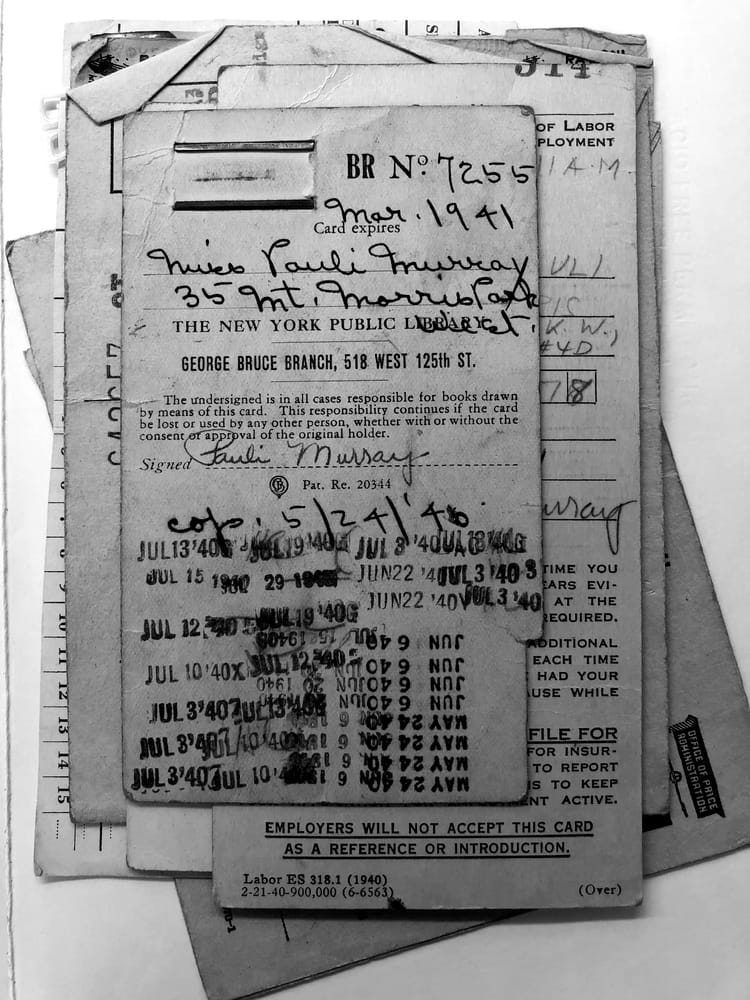 314
OF LABOR
PLOYMENT
BR No. 7255
11 A.M.
Mar. 1941
Card expires
Miss Pauli Murray
35 Mt. Morris Park
West.
THE NEW YORK PUBLIC LIBRARY
K. W.,
#4D
GEORGE BRUCE BRANCH, 518 WEST 125th ST.
78
The undersigned is in all cases responsible for books drawn
by means of this card. This responsibility continues if the card
be lost or used by any other person, whether with or without the
consent or approval of the original holder.
Signed Pauli Murray
Pat. Re. 20344
cop. 5/24/'40
JUL 13 '40 JUL 19 '40 JUL 3 '40
JUL 15 1940 29 JUN 22 '40 JUL 3 '40
JUN 22 '40 JUL 3 '40
JUL 12 '40 JUL 19 '40G
JUN 6 40
JUL 10 '40X JUL 12 '40
JUN 6 40
JUN 6 40
JUL 3 '40 JUL 13 '40
MAY 24 40
JUL 3 '40 JUL 10 '40
MAY 24 40
JUL 3 '40 JUL 10 '40
MAY 24 40
TIME YOU
EARS EVI-
AT THE
REQUIRED.
ADDITIONAL
EACH TIME
HAD YOUR
USE WHILE
FILE FOR
FOR INSUR-
TO REPORT
IS TO KEEP
NT ACTIVE.
EMPLOYERS WILL NOT ACCEPT THIS CARD
AS A REFERENCE OR INTRODUCTION.
Labor ES 318.1 (1940)
2-21-40-900,000 (6-6563)
(Over)
OFFICE OF PRICE
ADMINISTRATION
9
10
11
12
13
14
15